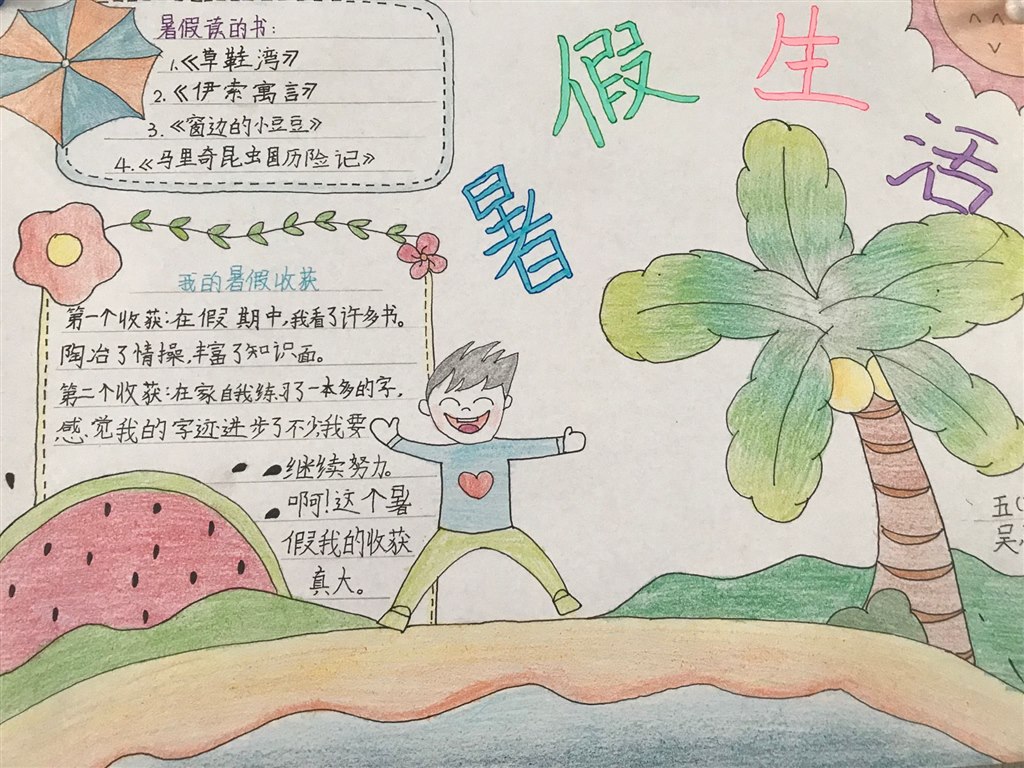 暑假生活
暑假读的书:
1.《草鞋湾》
2.《伊索寓言》
3.《窗边的小豆豆》
4.《马里奇昆虫国历险记》
我的暑假收获
第一个收获:在假期中,我看了许多书。
陶冶了情操,丰富了知识面。
第二个收获:在家自我练习了一本多的字,
感觉我的字迹进步了不少,我要
继续努力。
啊!这个暑
假我的收获
真大。
五
吴